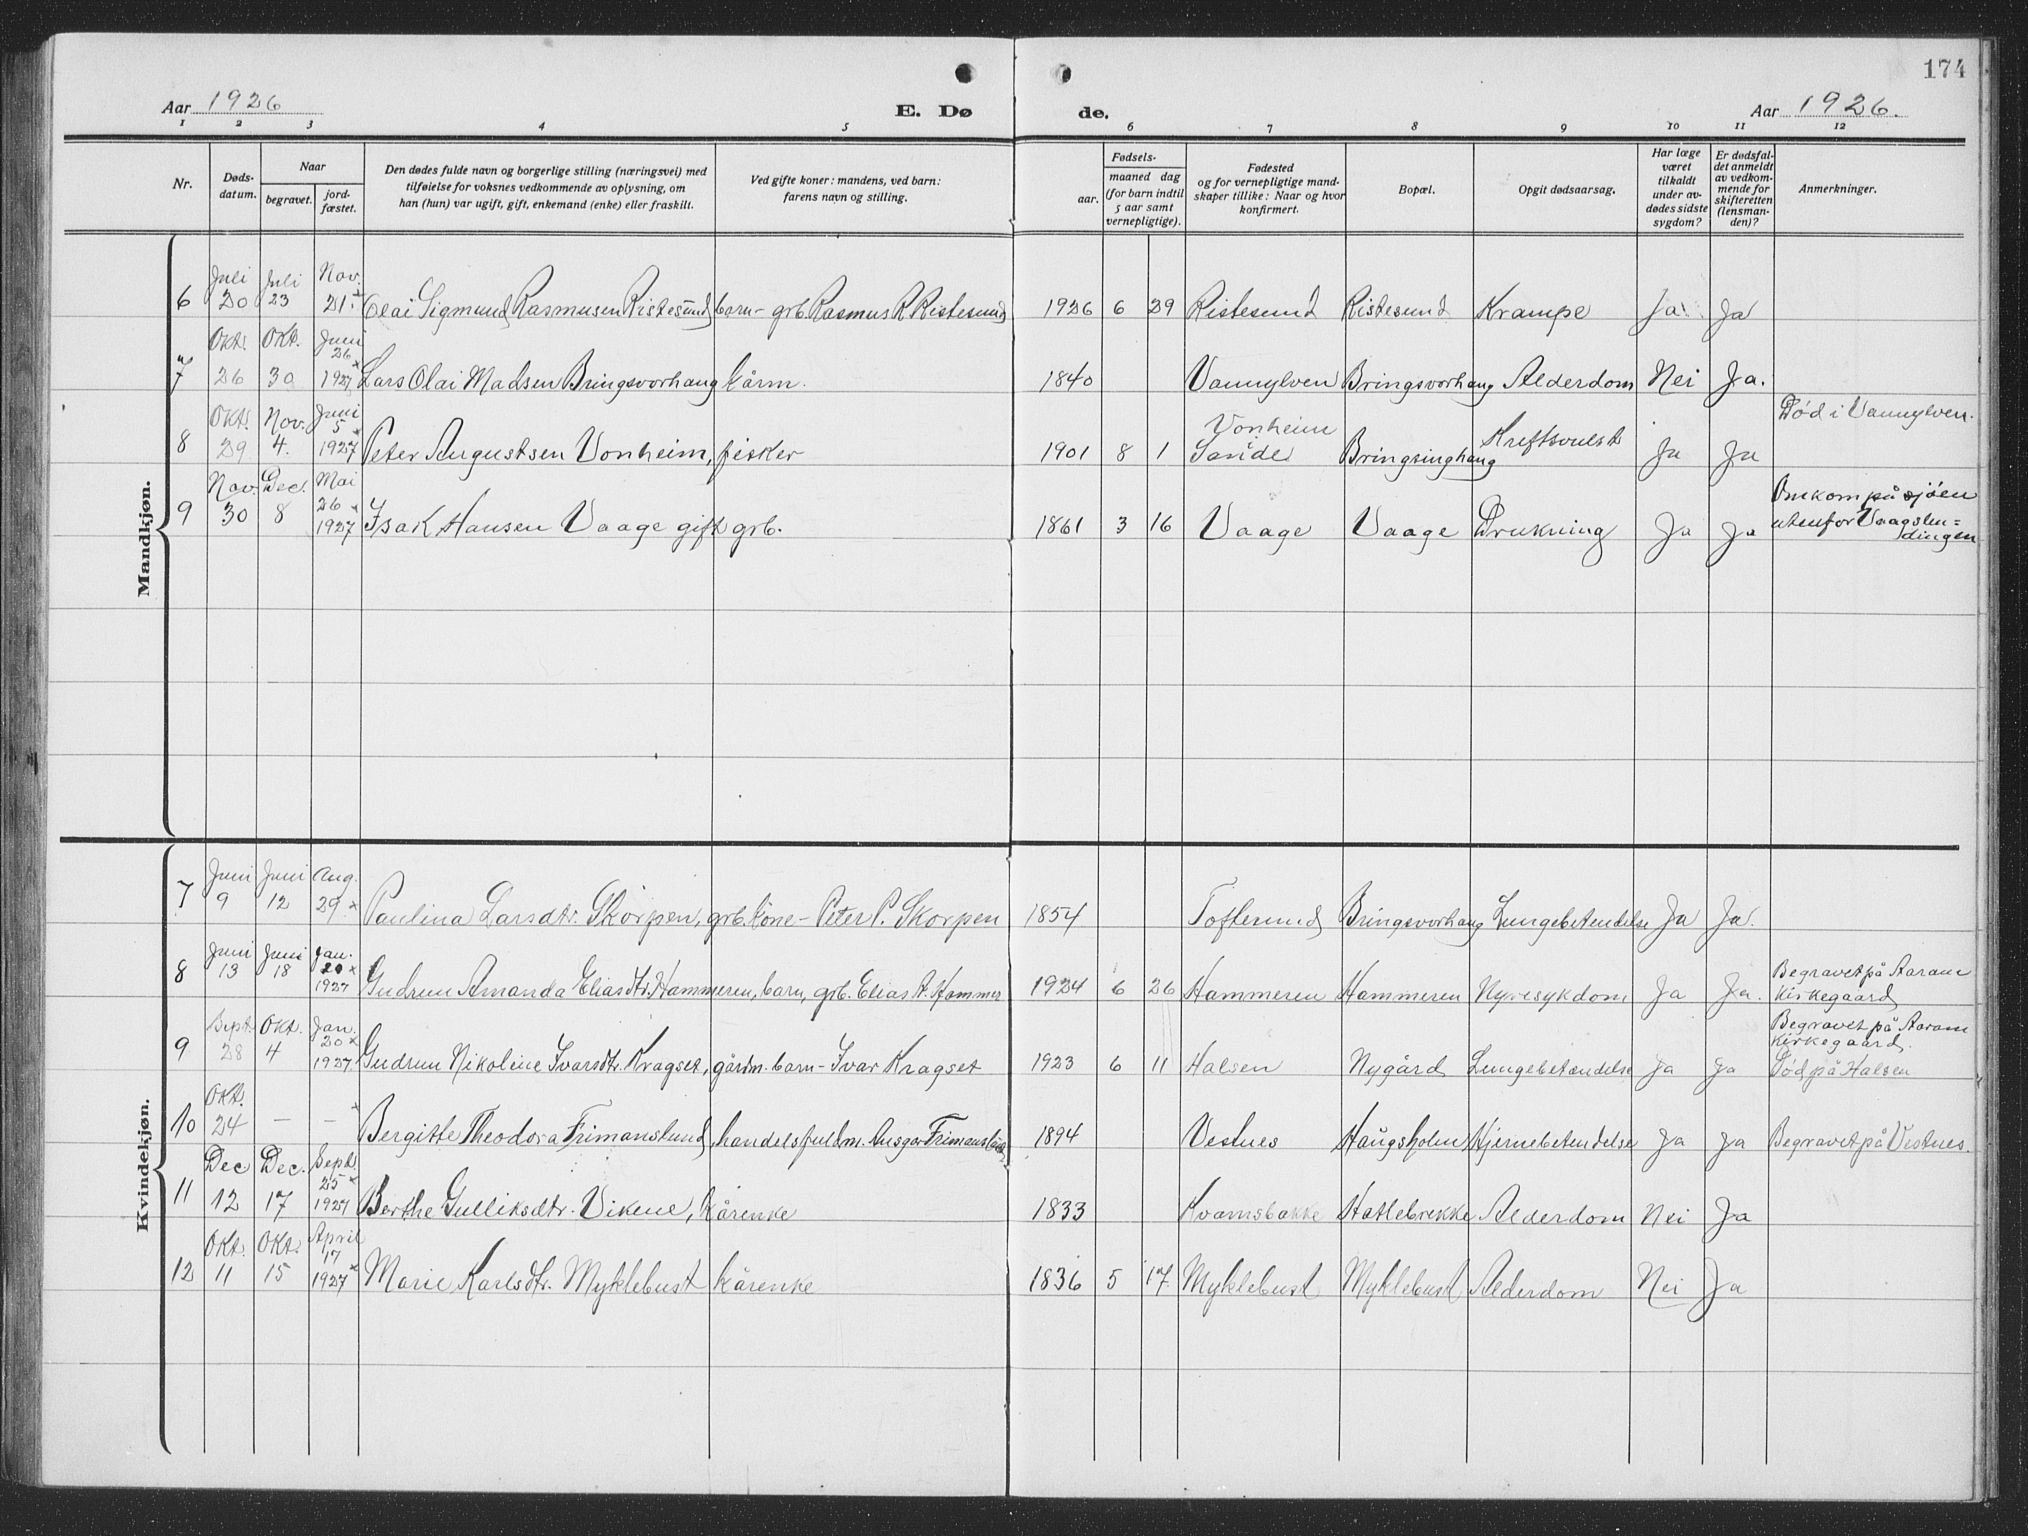 174
Aar 1926
E. Dø
de.
Aar 1926.
1 2 3 4 5 6 7 8 9 10 11 12
Nr.
Døds-
datum.
Naar
begravet.
jord-
fæstet.
Den dødes fulde navn og borgerlige stilling (næringsvei) med
tilføielse for voksnes vedkommende av oplysning, om
han (hun) var ugift, gift, enkemand (enke) eller fraskilt.
Ved gifte koner: mandens, ved barn:
farens navn og stilling.
Fødsels-
aar.
maaned dag
(for barn indtil
5 aar samt
vernepligtige).
Fødested
og for vernepligtige mand-
skaper tillike: Naar og hvor
konfirmert.
Bopæl.
Opgit dødsaarsag.
Har læge
været
tilkaldt
under av-
dødes sidste
sygdom?
Er dødsfal-
det anmeldt
av vedkom-
mende for
skifteretten
(lensman-
den)?
Anmerkninger.
Mandkjøn.
Juli Juli Nov.
6 20 23 21. Olai Sigmund Rasmusen Ristesund barn - grb. Rasmus R. Ristesund 1926 6 29 Ristesund Ristesund Krampe Ja Ja
Okt. Okt. Juni
26
7 26 30 1927 Lars Olai Madsen Bringsvorhaug kårm. 1840 Vannylven Bringsvorhaug Alderdom Nei Ja.
Okt. Nov. Juni
5
Vonheim
Død i Vannylven.
8 29 4. 1927 Peter Augustsen Vonheim, fisker 1901 8 1 i Sande Bringsinghaug Kreftsvulst Ja Ja
Nov. Dec. Mai
26
Omkom på sjøen
9 30 8 1927 Isak Hansen Vaage gift grb. 1861 3 16 Vaage Vaage Drukning Ja Ja utenfor Vaagslen=
dingen
Kvindekjøn.
Juni Juni Aug.
7 9 12 29 Paulina Larsdtr. Skorpen, grb. kone - Peter P. Skorpen 1854 Toftesund Bringsvorhaug Lungebetendelse Ja Ja.
Juni Juni Jan.
8 13 18 20 Begravet på Aaram
1927 Gudrun Amanda Eliasdtr. Hammeren, barn, grb. Elias A. Hammer 1924 6 26 Hammeren Hammeren Nyresykdom Ja Ja. Kirkegaard
Sept. Okt. Jan.
20
Begravet på Aaram
Kirkegaard.
9 28 4 1927 Gudrun Nikoleine Ivarsdtr. Kragset, gårdm. barn - Ivar Kragset 1923 6 11 Halsen Nygård Lungebetendelse Ja Ja Død på Halsen
Okt.
10 24 — — Bergitte Theodora Frimanslund, handelsfuldm. Ansgar Frimanslund 1894 Vestnes Haugsholm Hjernebetendelse Ja Ja Begravet på Vestnes.
Dec Dec. Sept.
25
11 12 17 1927 Berthe Gulliksdtr. Vikene, kårenke 1833 Kvamsbakke Hatlebrekke Alderdom Nei Ja
Okt. Okt. April
17
12 11 15 1927 Marie Karlsdtr. Myklebust kårenke 1836 5 17. Myklebust Myklebust Alderdom Nei Ja